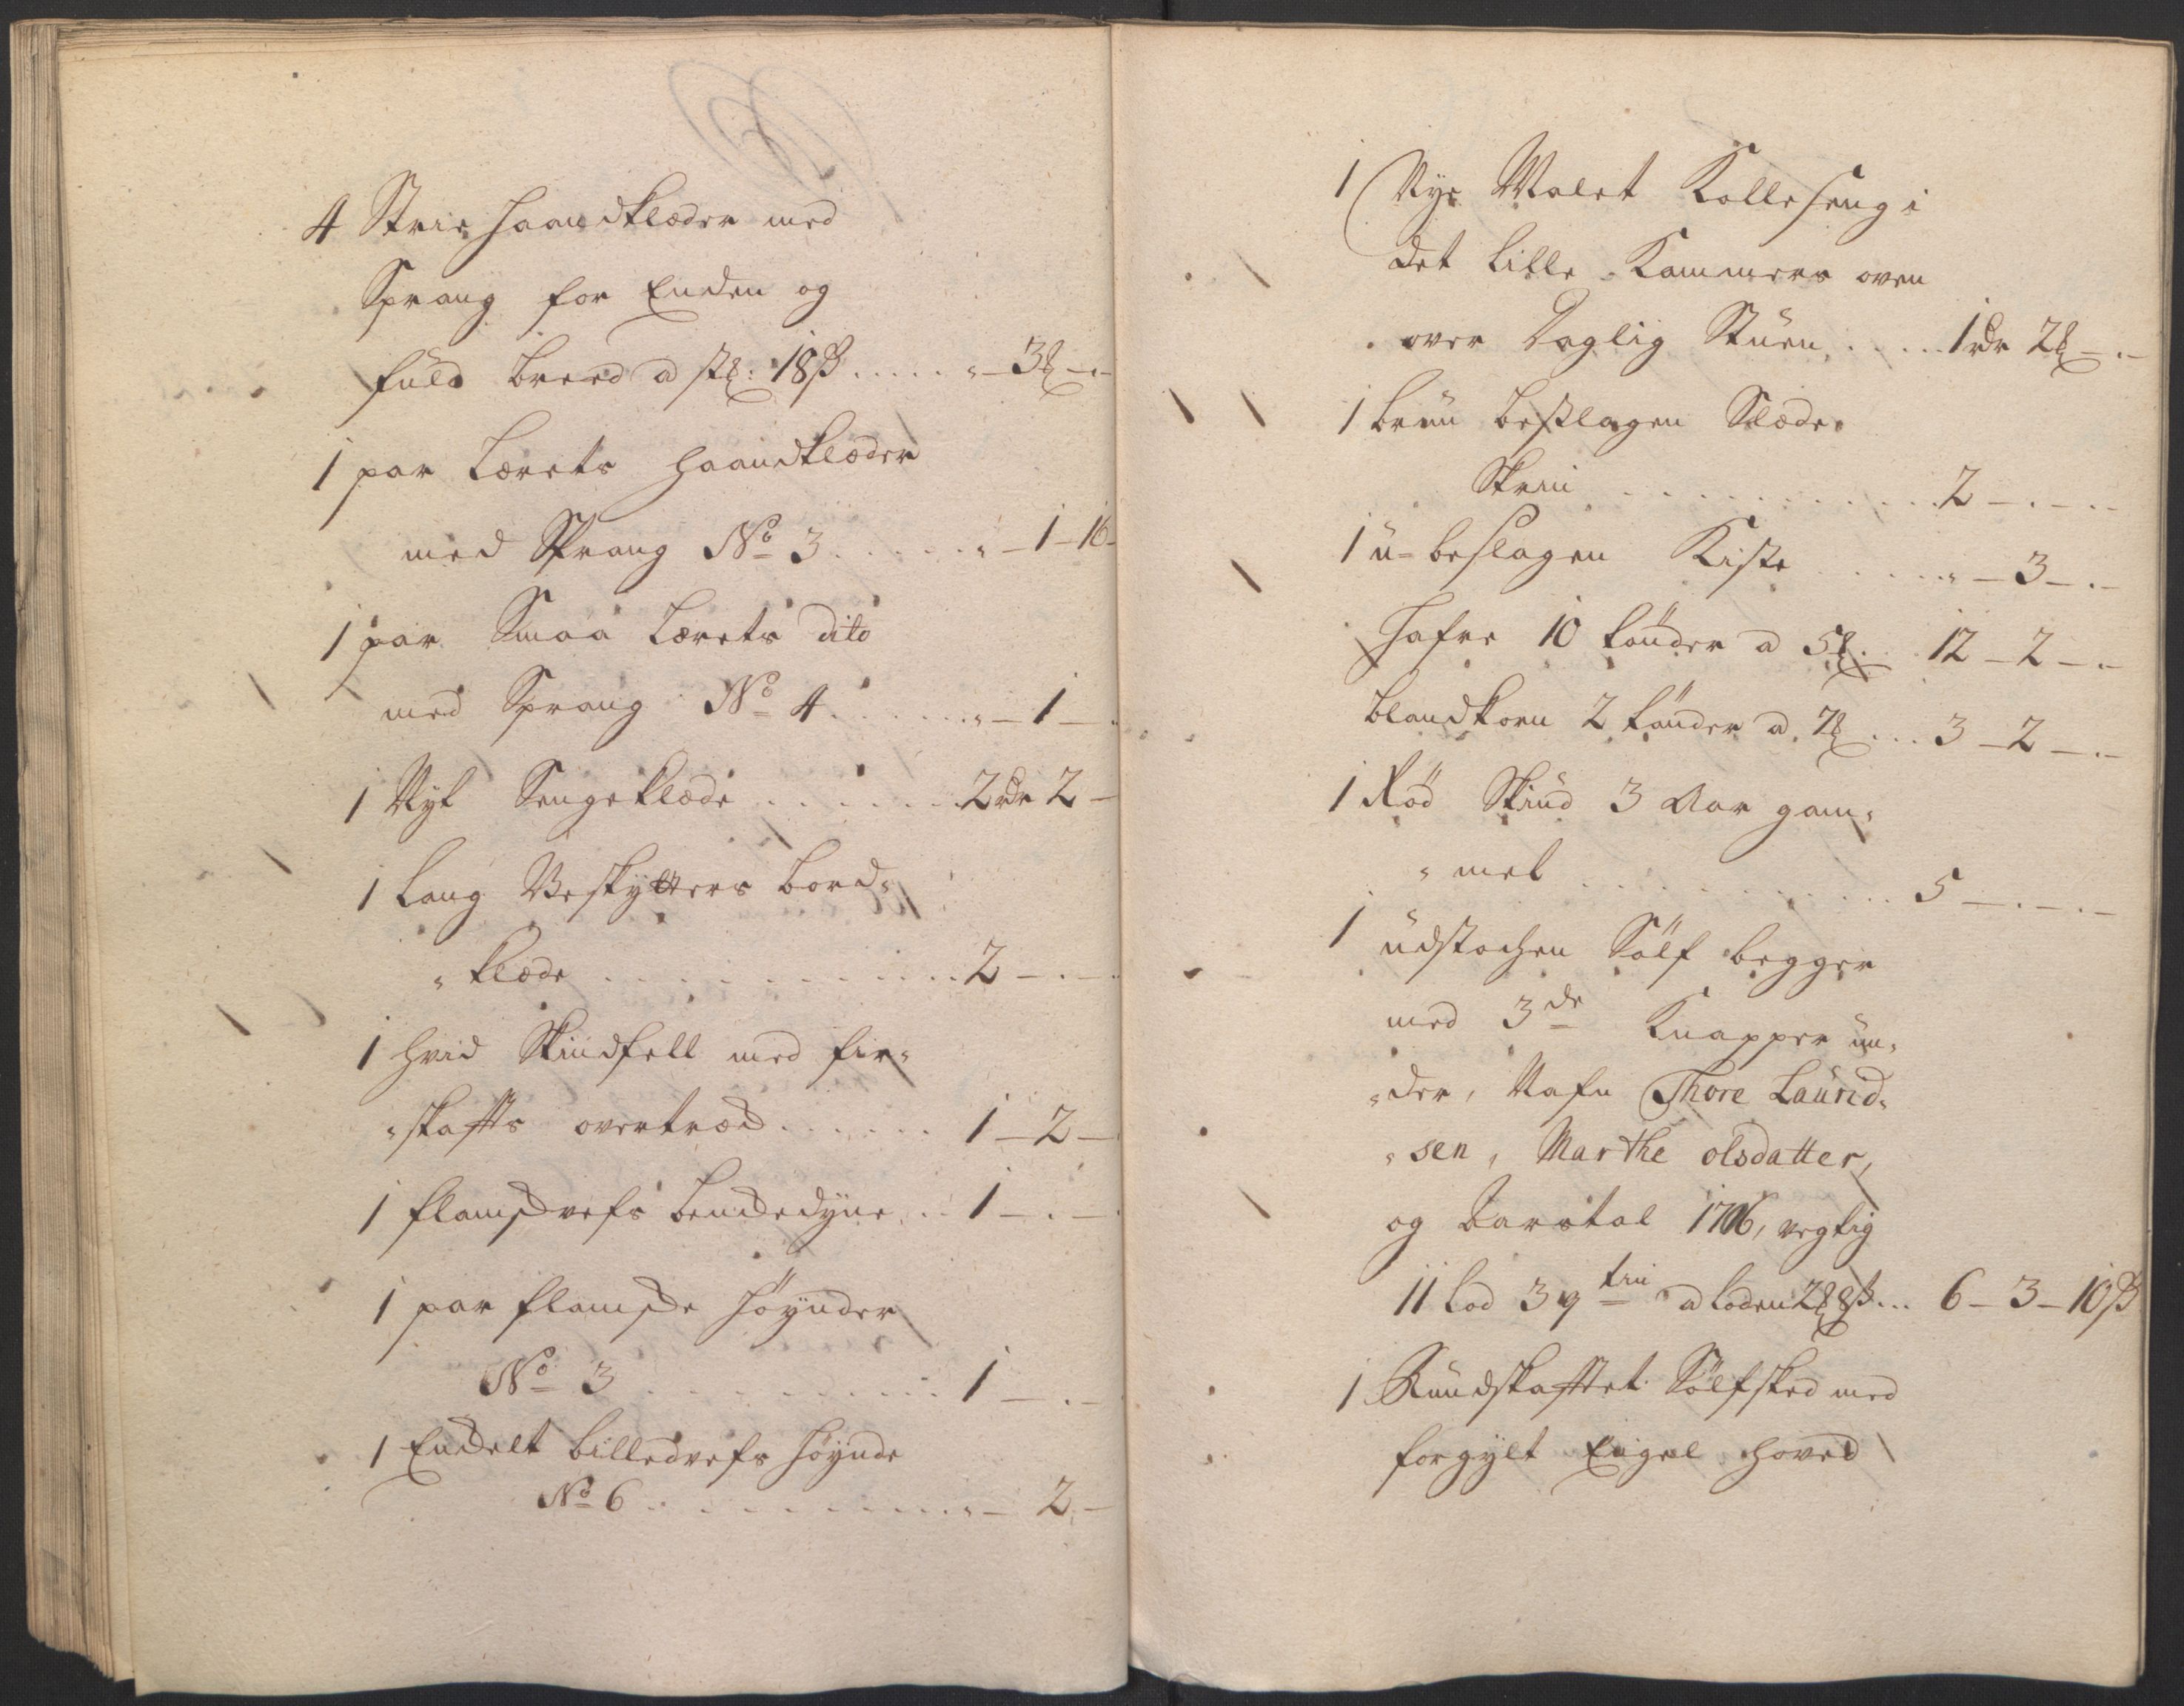 4 Strie Haandklæder med
Sprang for Enden og
fuld breed a st: 18 ß ..... " - 3 - " -
1 par Lærets Haandklæder
med Sprang No 3 ...... " - 1 - 16 -
1 par Smaa Lærets dito
med Sprang No 4 ....... " - 1 - "
1 Nyt Sengeklæde ....... 2 rdr 2 -
1 Lang Beskytters bord=
"klæde ............ 2 - " -
1 hvid Skindfell med fir=
"skaffts overtræd ...... 1 - 2 -
1 flamskvefs benckedyne .. 1 - " -
1 par flamske Høynder
No 3 .......... 1 - " -
1 Enckelt billedvefs Høynde
No 6 ........... " - 2 -
1 Nye Malet Kollseng i
det lille Kammers oven
over Daglig Stuen ..... 1 rdr 2 - " -
1 brun beslagen Slæde=
Skrin ............ 2 - " - " -
1 u=beslagen Kiste ...... " - 3 - " -
Hafre 10 tønder a 5 .. 12 - 2 - " -
blandkorn 2 tønder a 7 ... 3 - 2 - " -
1 Rød Skind 3 Aar gam=
"mel .............. 5 - " - " -
1 udstochen Sølf begger
med 3de Knapper un=
"der, Nafn Thore Laurid=
"sen, Marthe olsdatter,
og Aarstal 1706, vegtig
11 Lod 3 qtin a loden 2 8 ß ... 6 - 3 - 10 ß
1 Rundskafftet Sølfsked med
forgylt Engel hoved